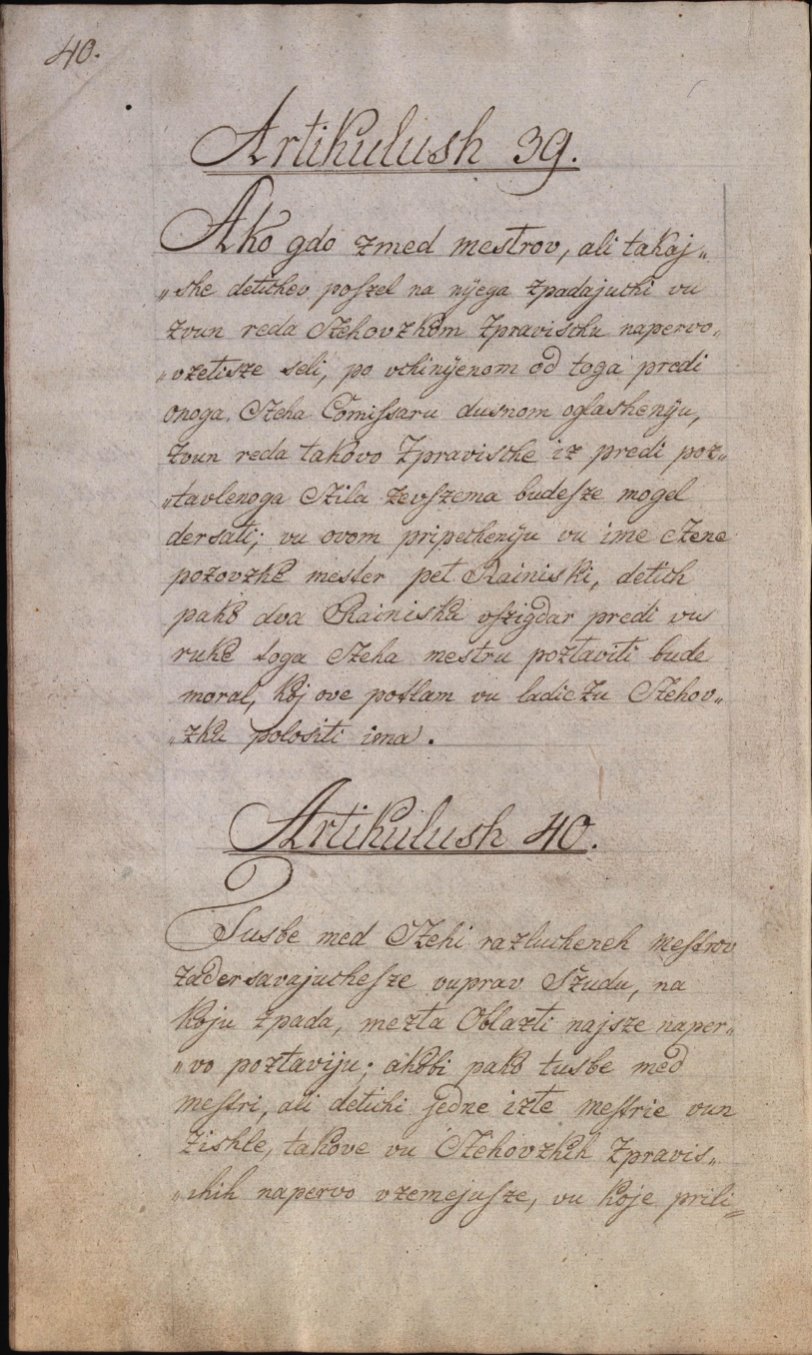 40.
Artikulush 39.
Ako gdo zmed mestrov, ali takaj„
„she detichev poszel na nyega zpadajuchi vu
zvun reda Czehovzkom zpravischu napervo„
„vzetisze seli, po vchinyenom od toga predi
onoga Czeha Comissaru dusnom oglashenyu,
zvun reda takovo Zpravische iz predi poz„
„tavlenoga Czila zevszema budesze mogel
dersati; vu ovom pripecheniju vu ime Czene
pozovzke mester pet Rainiski, detich
pako dva Rainiska vszigdar predi vu
ruke toga Czeha mestru poztaviti bude
moral, koj ove poslam vu ladiczu Czehov„
„zku polositi ima.
Artikulush 40.
Tusbe med Czehi razlucheneh mestrov
zadersavajuchesze vuprav Szudu, na
koju zpada, mezta Oblazti najsze naper„
„vo poztaviju; akobi pako tusbe med
mestri, ali detichi jedne izte mestrie vun
zishle, takove vu Czehovzkih zpravis„
„chih napervo vzemejusze, vu koje prili„